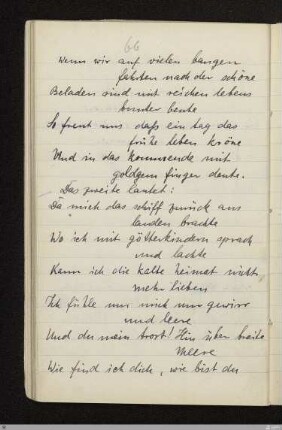 66
Wenn wir auf vielen bangen
fahrten nach der schöne
Beladen sind mit reichen lebens
bunter beute
So freut uns dass ein tag das
frühe leben kröne
Und in das kommende mit
goldgem finger deute.
Das zweite lautet:
Da mich das schiff zurück aus
landen brachte
Wo ich mit götterkindern sprach
und lachte
Kann ich die kalte heimat nicht
mehr lieben
Ich fühle nur mich nur gewirr
und leere
Und du mein trost! Hin über breite
Meere
Wie find ich dich, wie bist du